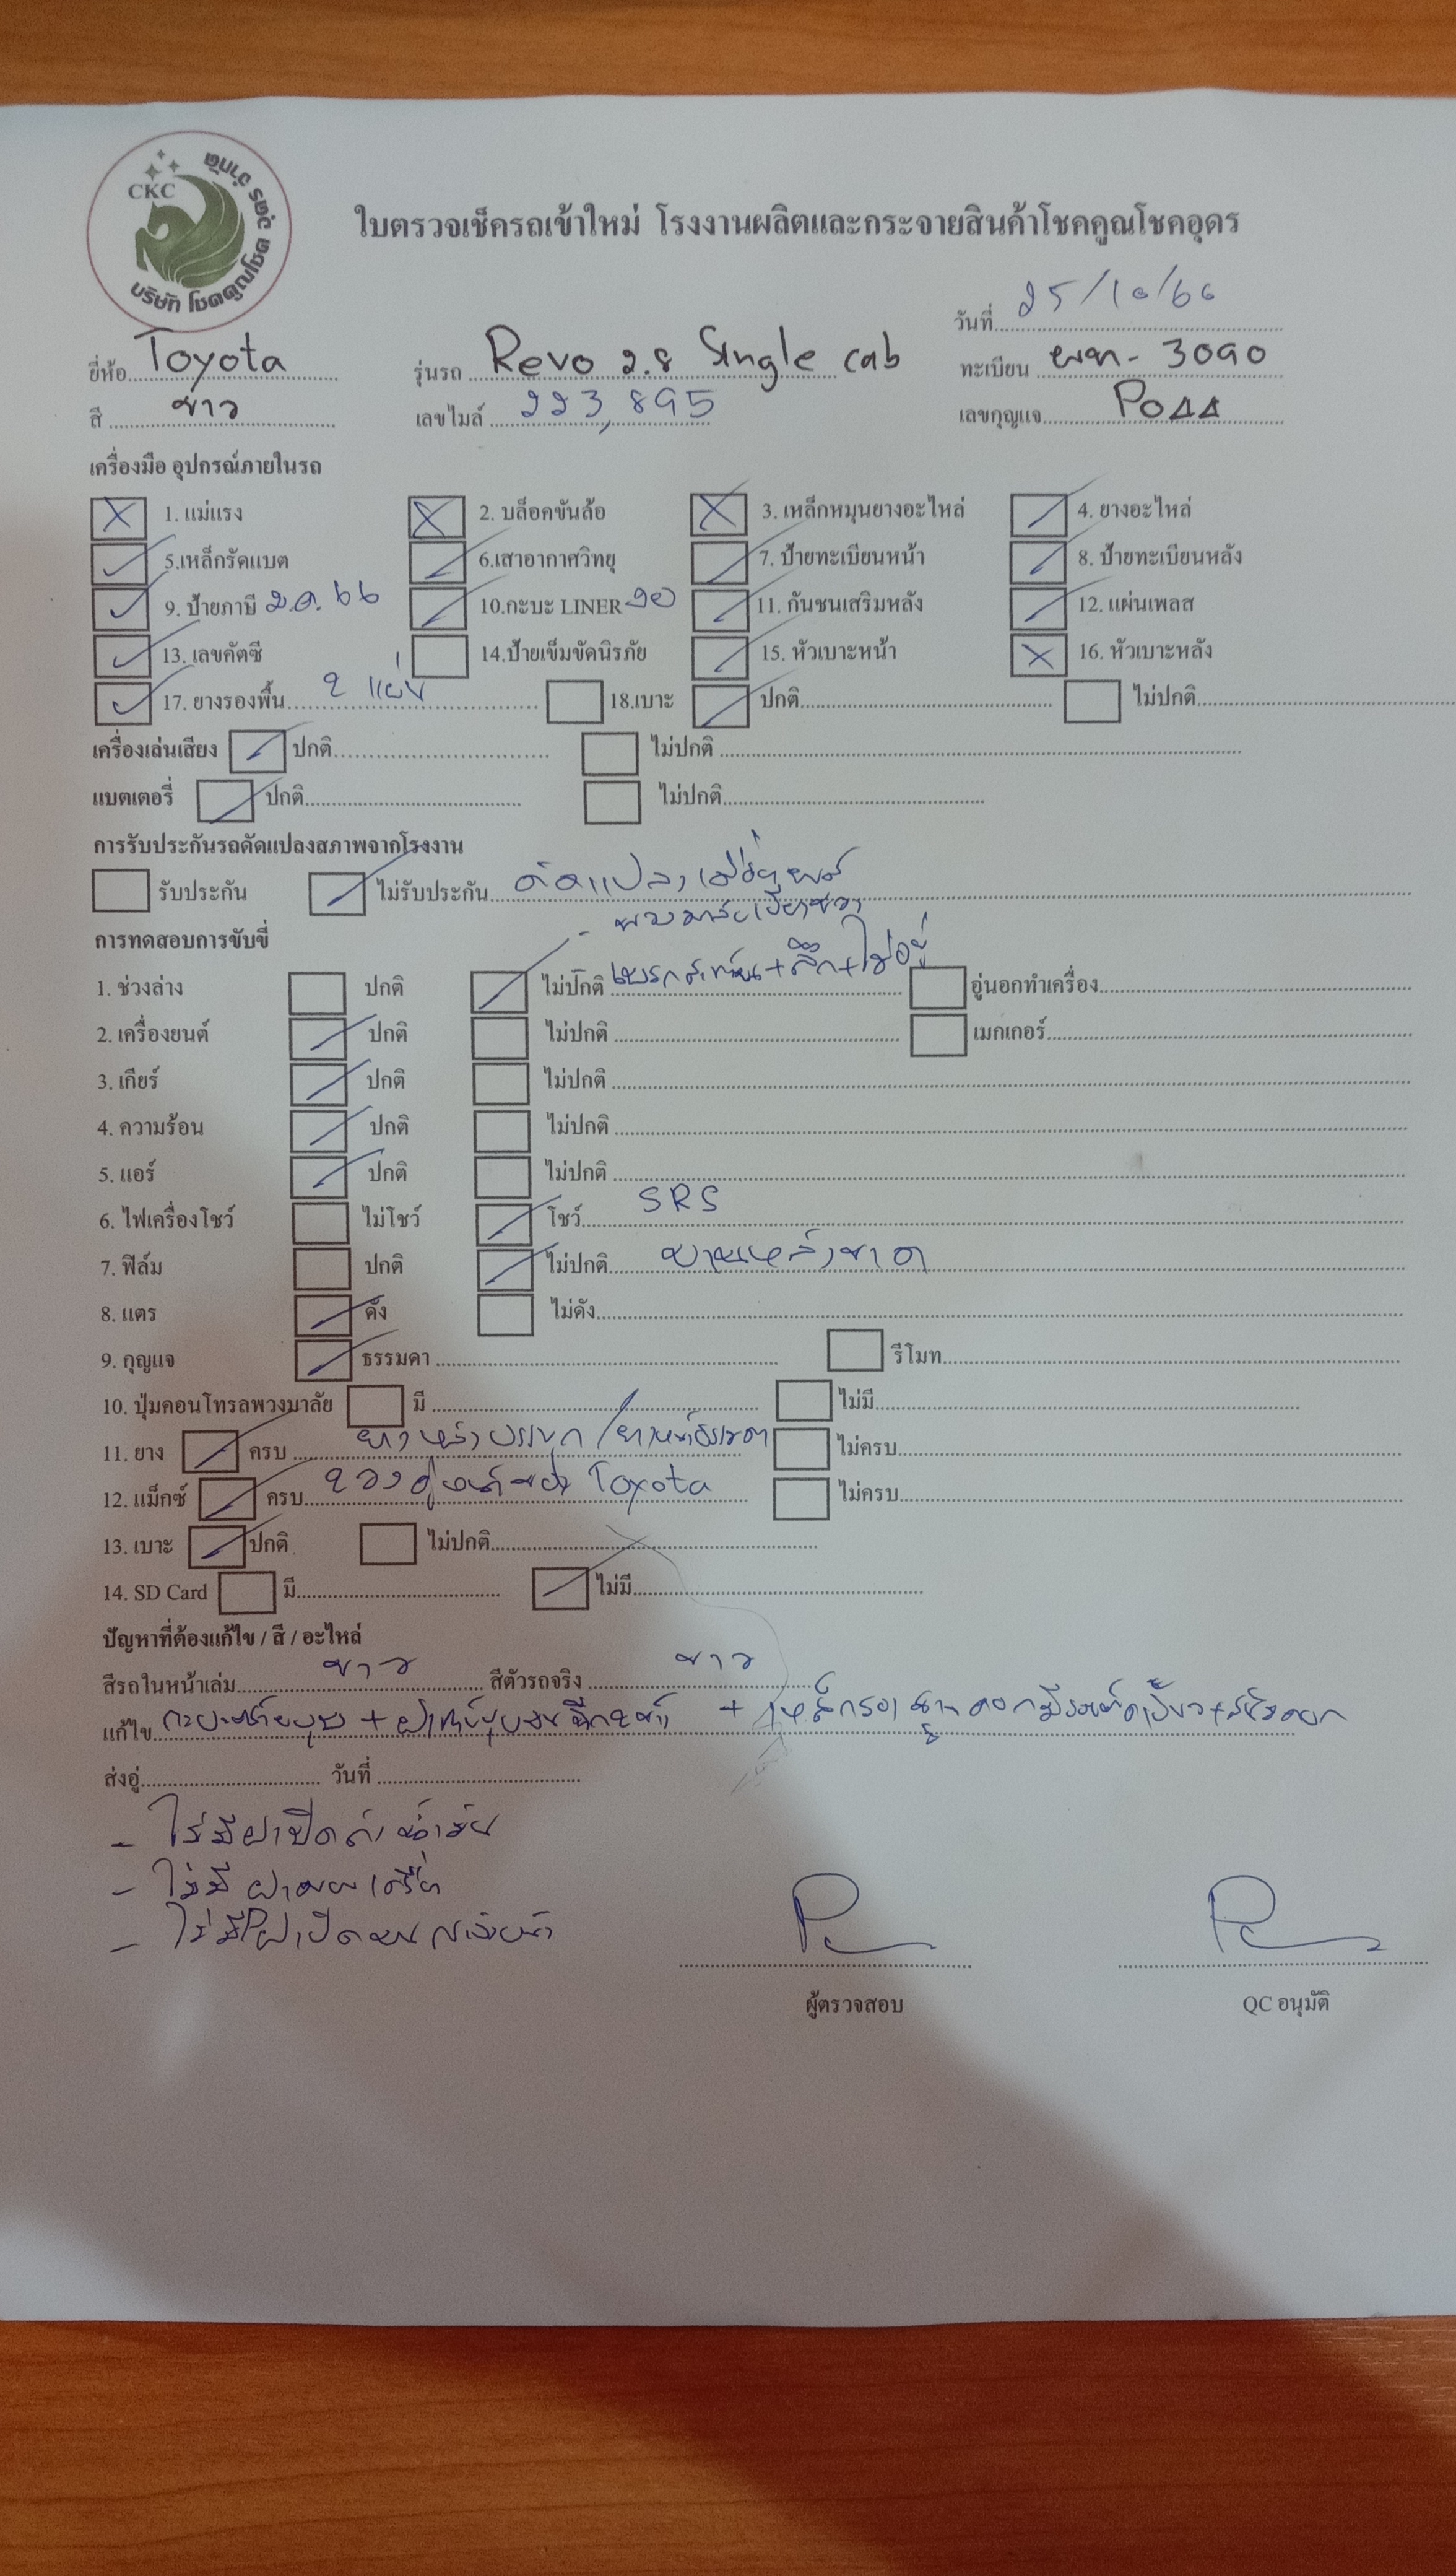 CKC
บริษัท โชคคูณโชค ตวัตร จำกัด
ใบตรวจเช็ครถเข้าใหม่ โรงงานผลิตและกระจายสินค้าโชคคูณโชคอุดร
วันที่ 25/10/66
ยี่ห้อ Toyota รุ่นรถ Revo 2.8 Single cab ทะเบียน 3090
สี ขาว เลขไมล์ 223,895 เลขกุญแจ
เครื่องมือ อุปกรณ์ภายในรถ
1. แม่แรง 2. บล็อคขันล้อ 3. เหล็กหมุนยางอะไหล่ 4. ยางอะไหล่
5.เหล็กรัดแบต 6.เสาอากาศวิทยุ 7. ป้ายทะเบียนหน้า 8. ป้ายทะเบียนหลัง
9. ป้ายภาษี 66 10.กะบะ LINER 11. กันชนเสริมหลัง 12. แผ่นเพลส
13. เลขคัตซี 14.ป้ายเข็มขัดนิรภัย 15. หัวเบาะหน้า 16. หัวเบาะหลัง
17. ยางรองพื้น 2 แผ่น 18.เบาะ ปกติ ไม่ปกติ
เครื่องเล่นเสียง ปกติ ไม่ปกติ
แบตเตอรี่ ปกติ ไม่ปกติ
การรับประกันรถดัดแปลงสภาพจากโรงงาน
รับประกัน ไม่รับประกัน ดัดแปลงเครื่องยนต์
การทดสอบการขับขี่
1. ช่วงล่าง ปกติ ไม่ปกติ อู่นอกทำเครื่อง
2. เครื่องยนต์ ปกติ ไม่ปกติ เมกเกอร์
3. เกียร์ ปกติ ไม่ปกติ
4. ความร้อน ปกติ ไม่ปกติ
5. แอร์ ปกติ ไม่ปกติ
6. ไฟเครื่องโชว์ ไม่โชว์ โชว์ SRS
7. ฟิล์ม ปกติ ไม่ปกติ บานหลังขาด
8. แตร ดัง ไม่ดัง
9. กุญแจ ธรรมดา รีโมท
10. ปุ่มคอนโทรลพวงมาลัย มี ไม่มี
11. ยาง ครบ ยางหลังบรรทุก/ยางหน้าธรรมดา ไม่ครบ
12. แม็กซ์ ครบ Toyota ไม่ครบ
13. เบาะ ปกติ ไม่ปกติ
14. SD Card มี ไม่มี
ปัญหาที่ต้องแก้ไข / สี / อะไหล่
สีรถในหน้าเล่ม ขาว สีตัวรถจริง ขาว
แก้ไข
ส่งอู่ วันที่
- ไม่มีฝาปิดถังน้ำมัน
- ไม่มี
- ไม่มี
ผู้ตรวจสอบ QC อนุมัติ